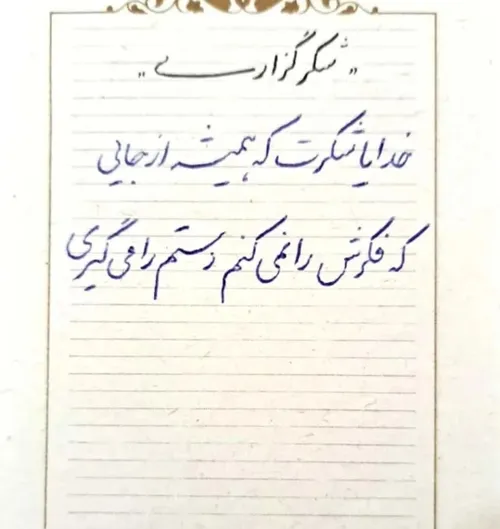 "شکرگزاری"
خدایا شکرت که همیشه از جایی
که فکرش را نمی کنم دستم را می گیری